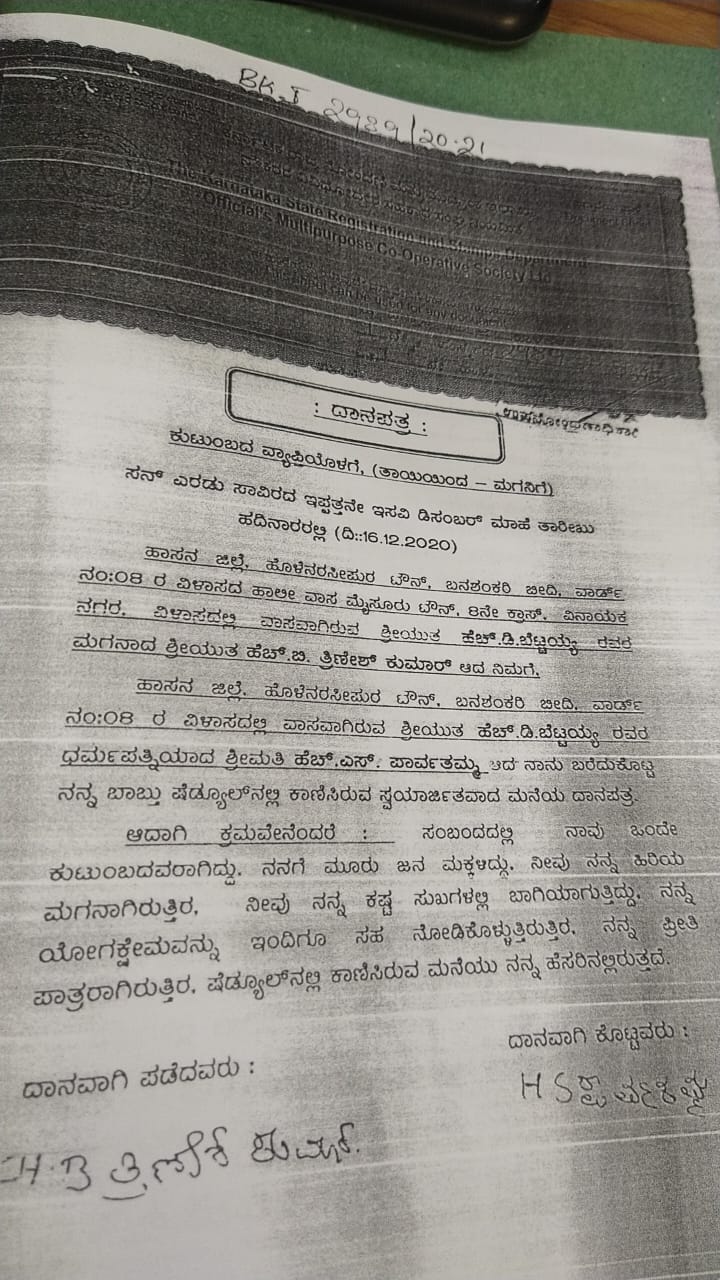 BK.I 2989/20-21
The Karnataka State Registration and Stamps Department
Official's Multipurpose Co-Operative Society Ltd
: ದಾನಪತ್ರ :
ಕುಟುಂಬದ ವ್ಯಾಪ್ತಿಯೊಳಗೆ, (ತಾಯಿಯಿಂದ – ಮಗನಿಗೆ)
ಸನ್ ಎರಡು ಸಾವಿರದ ಇಪ್ಪತ್ತನೇ ಇಸವಿ ಡಿಸಂಬರ್ ಮಾಹೆ ತಾರೀಖು
ಹದಿನಾರರಲ್ಲಿ (ದಿ::16.12.2020)
ಹಾಸನ ಜಿಲ್ಲೆ, ಹೊಳೆನರಸೀಪುರ ಟೌನ್, ಬನಶಂಕರಿ ಬೀದಿ, ವಾರ್ಡ್
ನಂ:08 ರ ವಿಳಾಸದ ಹಾಲೀ ವಾಸ ಮೈಸೂರು ಟೌನ್, 8ನೇ ಕ್ರಾಸ್, ವಿನಾಯಕ
ನಗರ, ವಿಳಾಸದಲ್ಲಿ ವಾಸವಾಗಿರುವ ಶ್ರೀಯುತ ಹೆಚ್.ಡಿ.ಬೆಟ್ಟಯ್ಯ ರವರ
ಮಗನಾದ ಶ್ರೀಯುತ ಹೆಚ್.ಬಿ. ತ್ರಿಣೇಶ್ ಕುಮಾರ್ ಆದ ನಿಮಗೆ,
ಹಾಸನ ಜಿಲ್ಲೆ, ಹೊಳೆನರಸೀಪುರ ಟೌನ್, ಬನಶಂಕರಿ ಬೀದಿ, ವಾರ್ಡ್
ನಂ:08 ರ ವಿಳಾಸದಲ್ಲಿ ವಾಸವಾಗಿರುವ ಶ್ರೀಯುತ ಹೆಚ್.ಡಿ.ಬೆಟ್ಟಯ್ಯ ರವರ
ಧರ್ಮಪತ್ನಿಯಾದ ಶ್ರೀಮತಿ ಹೆಚ್.ಎಸ್. ಪಾರ್ವತಮ್ಮ ಆದ ನಾನು ಬರೆದುಕೊಟ್ಟ
ನನ್ನ ಬಾಬ್ತು ಷೆಡ್ಯೂಲ್‌ನಲ್ಲಿ ಕಾಣಿಸಿರುವ ಸ್ವಯಾರ್ಜಿತವಾದ ಮನೆಯ ದಾನಪತ್ರ.
ಆದಾಗಿ ಕ್ರಮವೇನೆಂದರೆ : ಸಂಬಂದದಲ್ಲಿ ನಾವು ಒಂದೇ
ಕುಟುಂಬದವರಾಗಿದ್ದು, ನನಗೆ ಮೂರು ಜನ ಮಕ್ಕಳಿದ್ದು, ನೀವು ನನ್ನ ಹಿರಿಯ
ಮಗನಾಗಿರುತ್ತಿರ, ನೀವು ನನ್ನ ಕಷ್ಟ ಸುಖಗಳಲ್ಲಿ ಬಾಗಿಯಾಗುತ್ತಿದ್ದು, ನನ್ನ
ಯೋಗಕ್ಷೇಮವನ್ನು ಇಂದಿಗೂ ಸಹ ನೋಡಿಕೊಳ್ಳುತ್ತಿರುತ್ತಿರ, ನನ್ನ ಪ್ರೀತಿ
ಪಾತ್ರರಾಗಿರುತ್ತಿರ, ಷೆಡ್ಯೂಲ್‌ನಲ್ಲಿ ಕಾಣಿಸಿರುವ ಮನೆಯು ನನ್ನ ಹೆಸರಿನಲ್ಲಿರುತ್ತದೆ.
ದಾನವಾಗಿ ಕೊಟ್ಟವರು :
ದಾನವಾಗಿ ಪಡೆದವರು :
H S
H.B ತ್ರಿಣೇಶ್ ಕುಮಾರ್.